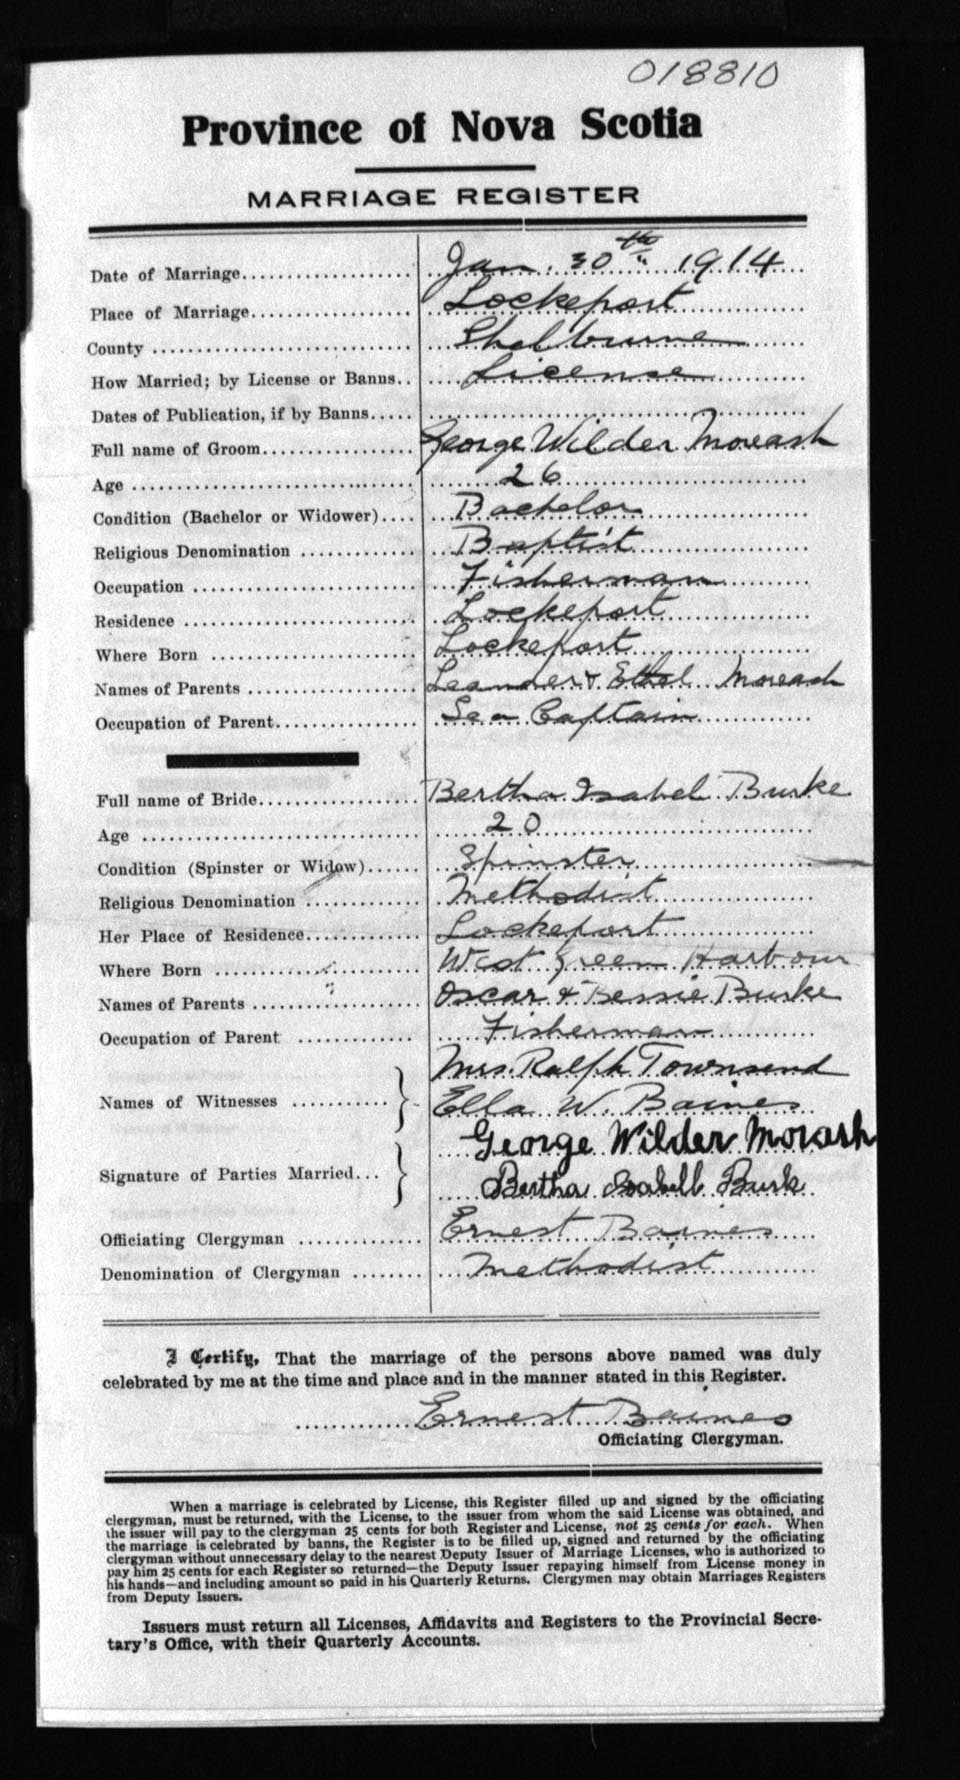 018810
Province of Nova Scotia
MARRIAGE REGISTER
Date of Marriage.................... Jan. 30th 1914
Place of Marriage................... Lockeport
County .............................. Shelburne
How Married; by License or Banns.. License
Dates of Publication, if by Banns.....
Full name of Groom.................. George Wilder Moreash
Age ................................. 26
Condition (Bachelor or Widower).... Bachelor
Religious Denomination ............. Baptist
Occupation .......................... Fisherman
Residence ........................... Lockeport
Where Born ......................... Lockeport
Names of Parents ................... Leander & Ethel Moreash
Occupation of Parent................ Sea Captain
Full name of Bride.................. Bertha Isabel Burke
Age ................................. 20
Condition (Spinster or Widow)...... Spinster
Religious Denomination ............ Methodist
Her Place of Residence............. Lockeport
Where Born ........................ West Green Harbour
Names of Parents .................. Oscar & Bessie Burke
Occupation of Parent ............. Fisherman
Mrs. Ralph Townsend
Names of Witnesses ........... } Ella W. Baines
George Wilder Morash
Signature of Parties Married... } Bertha Isabell Burk
Officiating Clergyman ............. Ernest Baines
Denomination of Clergyman ........ Methodist
I Certify, That the marriage of the persons above named was duly
celebrated by me at the time and place and in the manner stated in this Register.
Ernest Baines
Officiating Clergyman.
When a marriage is celebrated by License, this Register filled up and signed by the officiating
clergyman, must be returned, with the License, to the issuer from whom the said License was obtained, and
the issuer will pay to the clergyman 25 cents for both Register and License, not 25 cents for each. When
the marriage is celebrated by banns, the Register is to be filled up, signed and returned by the officiating
clergyman without unnecessary delay to the nearest Deputy Issuer of Marriage Licenses, who is authorized to
pay him 25 cents for each Register so returned—the Deputy Issuer repaying himself from License money in
his hands—and including amount so paid in his Quarterly Returns. Clergymen may obtain Marriages Registers
from Deputy Issuers.
Issuers must return all Licenses, Affidavits and Registers to the Provincial Secre-
tary's Office, with their Quarterly Accounts.